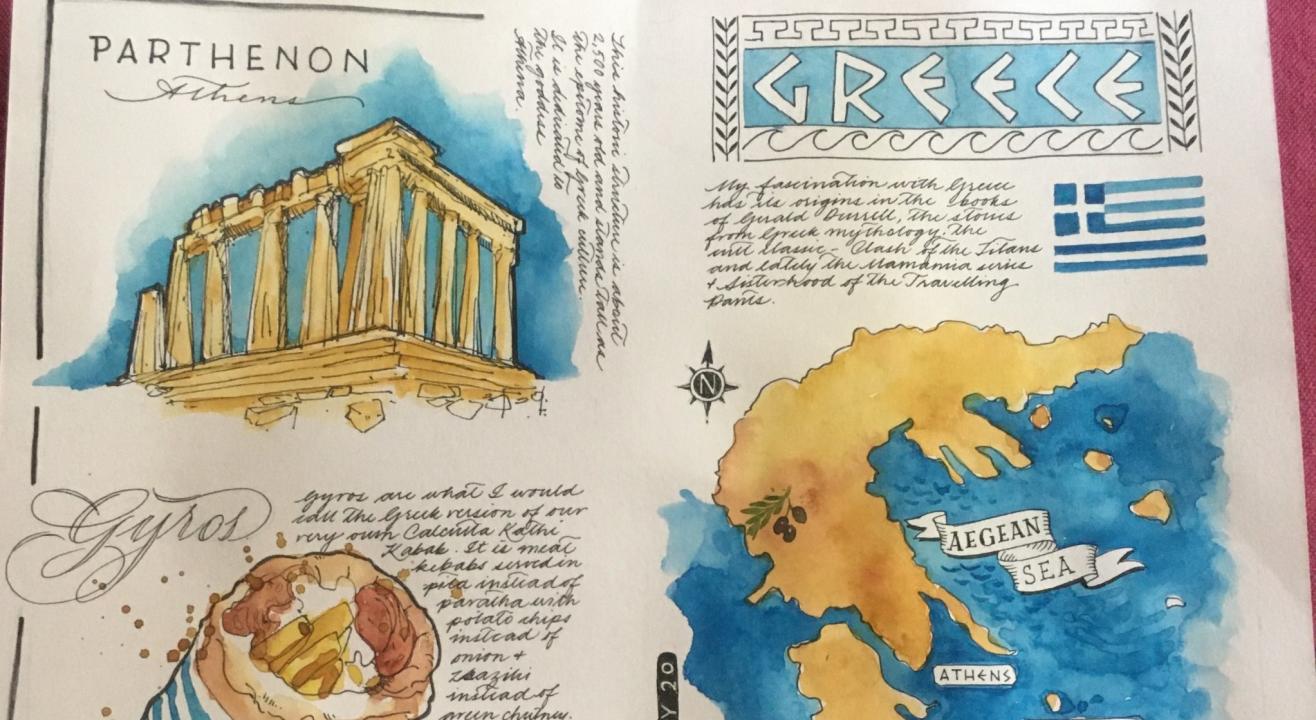 PARTHENON
Athens
This historic structure is about
2,500 years old and stands tall as
the epitome of Greek culture.
It is dedicated to
the goddess
Athena.
Gyros
Gyros are what I would
call the Greek version of our
very own Calcutta Kathi
Kabab. It is meat
kebabs served in
pita instead of
paratha with
potato chips
instead of
onion +
tzaziki
instead of
green chutney.
GREECE
My fascination with Greece
has its origins in the books
of Gerald Durrell, the stories
from Greek mythology, the
cult classic - Clash of the Titans
and lately the Mamamia series
+ Sisterhood of the Travelling
Pants.
N
AEGEAN
SEA
ATHENS
Y 20